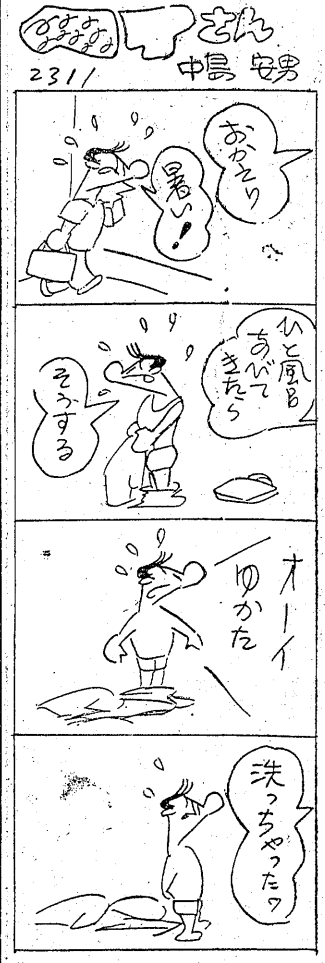 アさん
2311
中島 安男
おかえり
暑い!
ひと風呂
あびて
きたら
そうする
オーイ
ゆかた
洗っちゃったワ